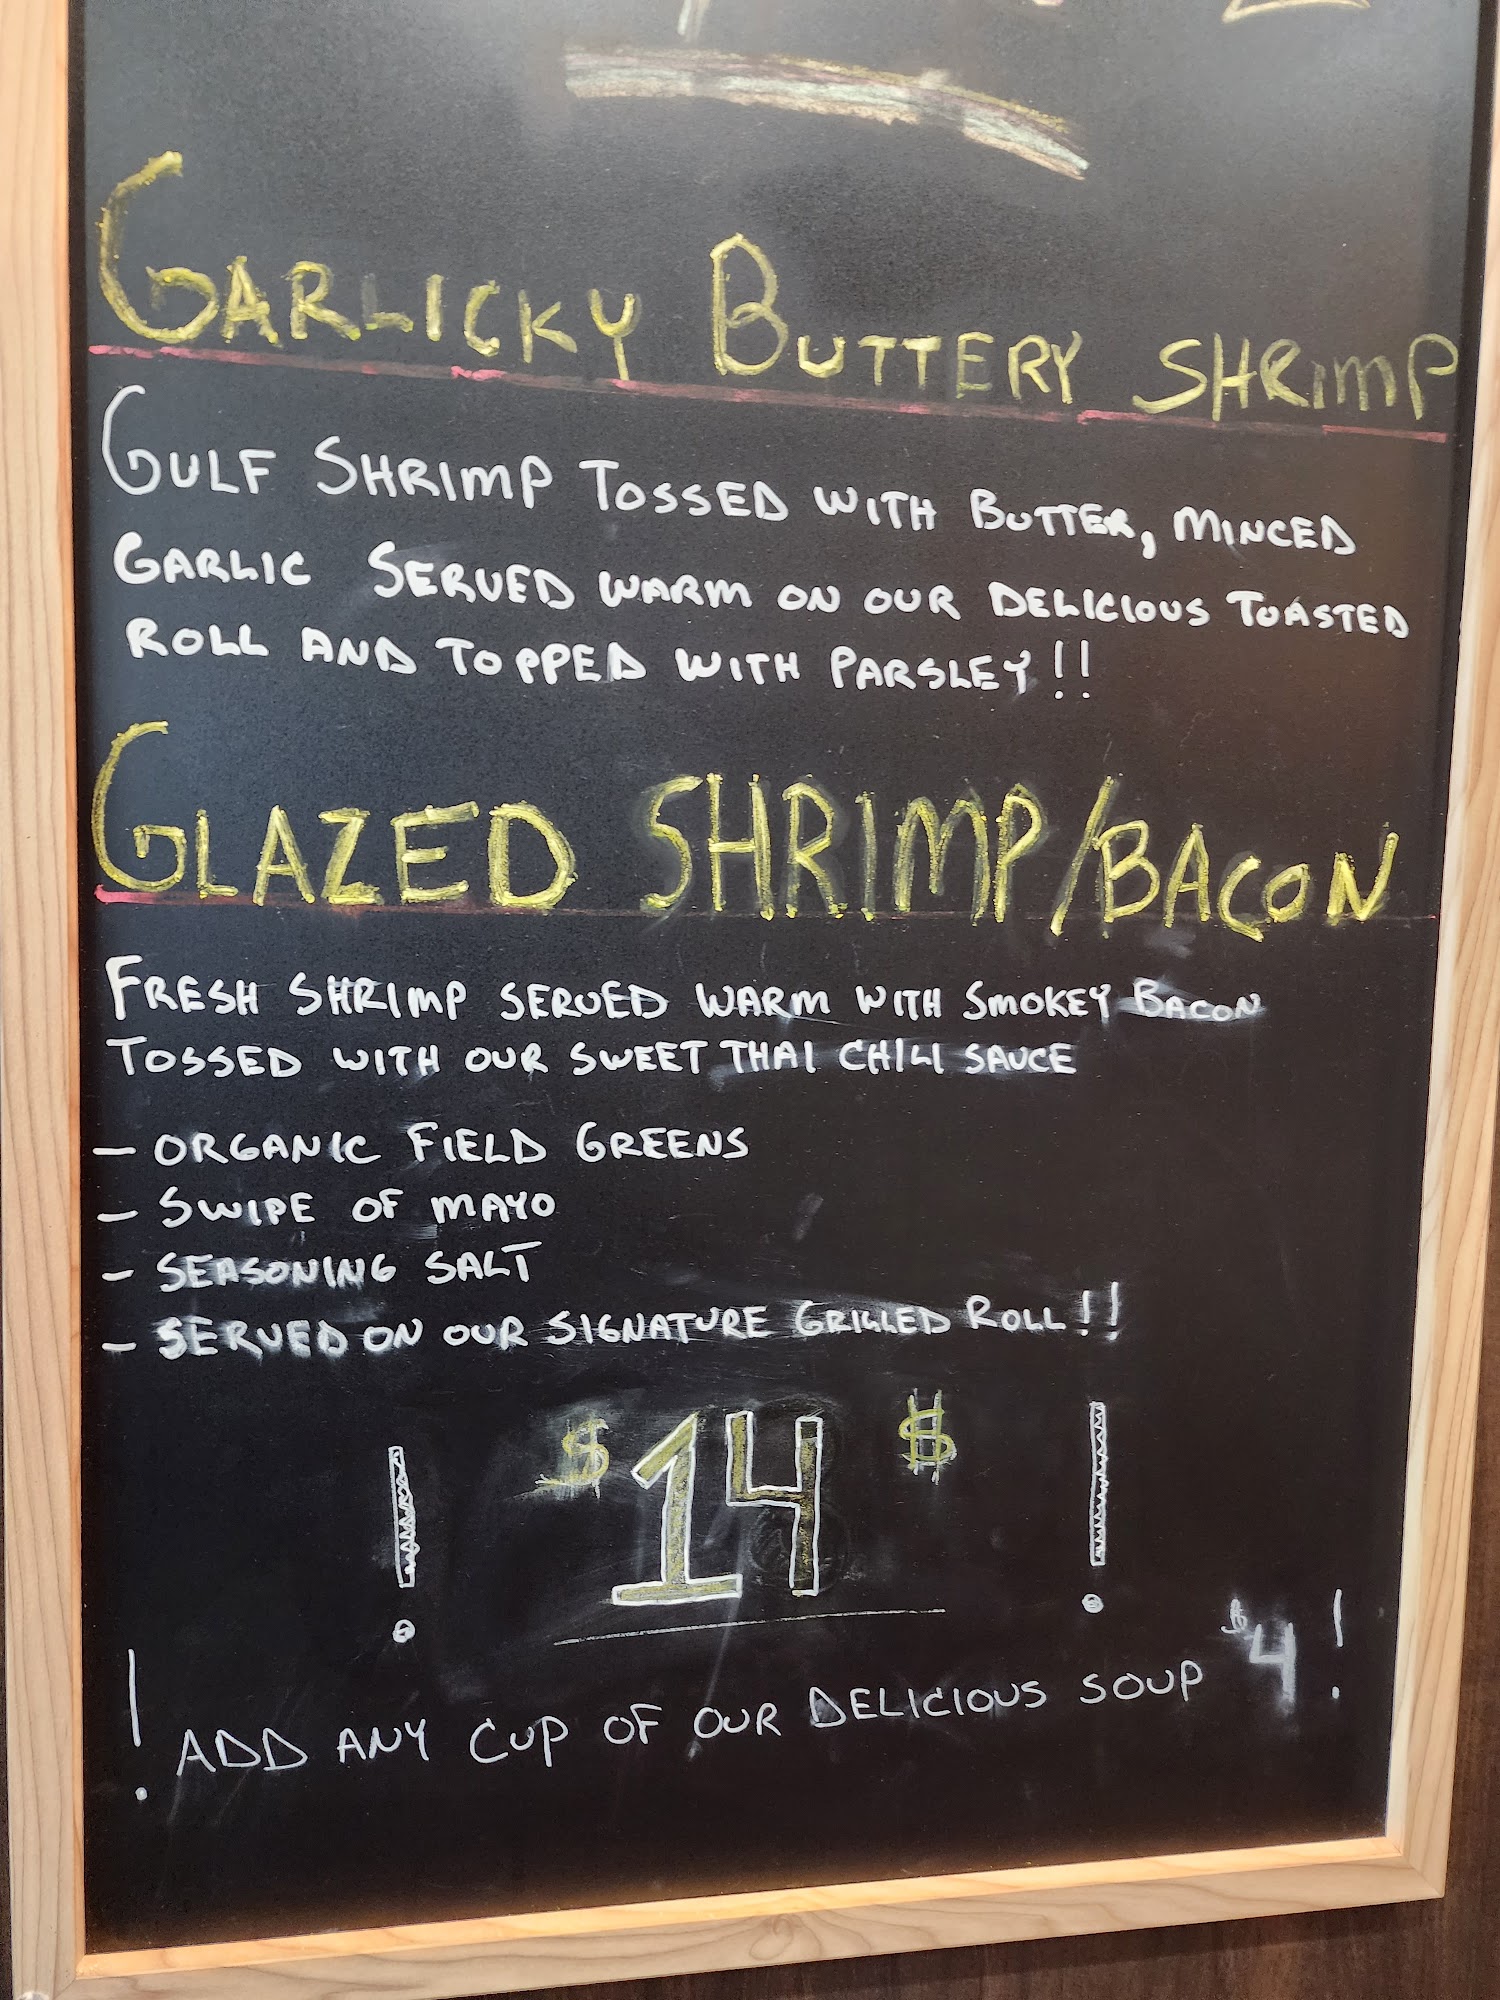 GARLICKY BUTTERY SHRIMP
GULF SHRIMP TOSSED WITH BUTTER, MINCED
GARLIC SERVED WARM ON OUR DELICIOUS TOASTED
ROLL AND TOPPED WITH PARSLEY!!
GLAZED SHRIMP/BACON
FRESH SHRIMP SERVED WARM WITH SMOKEY BACON
TOSSED WITH OUR SWEET THAI CHILI SAUCE
- ORGANIC FIELD GREENS
- SWIPE OF MAYO
- SEASONING SALT
- SERVED ON OUR SIGNATURE GRILLED ROLL!!
! $14$ !
! ADD ANY CUP OF OUR DELICIOUS SOUP $4!